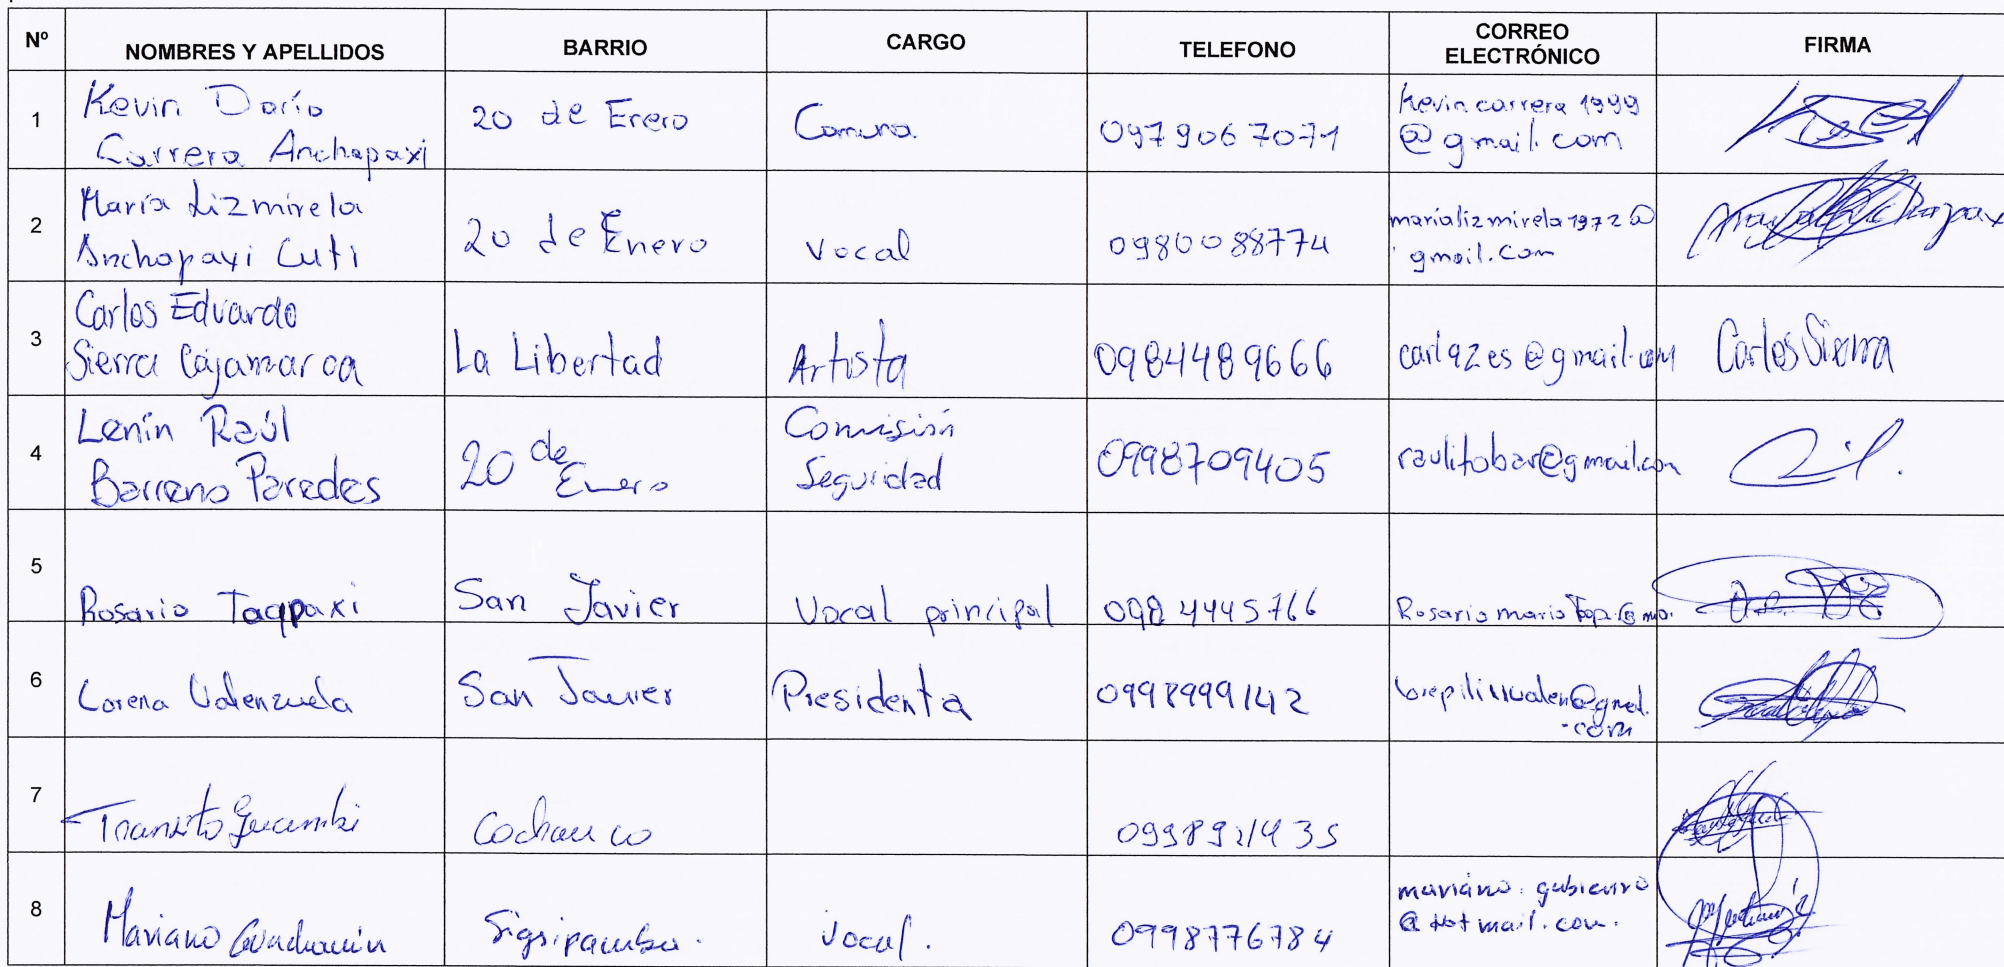 Nº NOMBRES Y APELLIDOS BARRIO CARGO TELEFONO CORREO ELECTRÓNICO FIRMA
1 Kevin Darío
Carrera Anchapaxi
20 de Enero
Comuna
0979067071
kevincarrera1999
@gmail.com
2 María Lizmirela
Anchapaxi Cuti
20 de Enero
Vocal
0980088774
marializmirela1972@
gmail.com
3 Carlos Eduardo
Sierra Cajamarca
La Libertad
Artista
0984489666
carlqzes@gmail.com
Carlos Sierra
4 Lenín Raúl
Barreno Paredes
20 de
Enero
Comisión
Seguridad
0998709405
raulitobar@gmail.com
5 Rosario Taqpaxi
San Javier
Vocal principal
098 4445766
Rosario maria
6 Lorena Valenzuela
San Javier
Presidenta
0998999142
7 Transito
0998921435
8 Mariano
Sigsipamba.
Vocal.
0998776784
mariano.
@Hotmail.com.